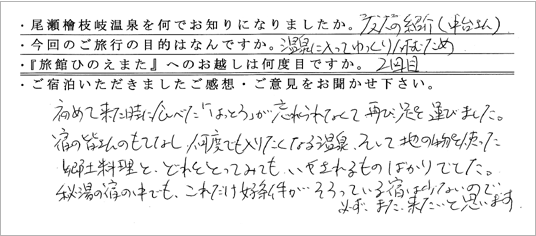 ・尾瀬檜枝岐温泉を何でお知りになりましたか。友人の紹介(中台さん)
・今回のご旅行の目的はなんですか。温泉に入ってゆっくり休むため
・『旅館ひのえまた』へのお越しは何度目ですか。2回目
・ご宿泊いただきましたご感想・ご意見をお聞かせ下さい。
初めて来た時に食べた「はっとう」が忘れられなくて再び足を運びました。
宿の皆さんのもてなし、何度でも入りたくなる温泉、そして地の物を使った
郷土料理と、どれをとってみても、いやされるものばかりでした。
秘湯の宿の中でも、これだけ好条件がそろっている宿は少ないので
必ず、また、来たいと思います。